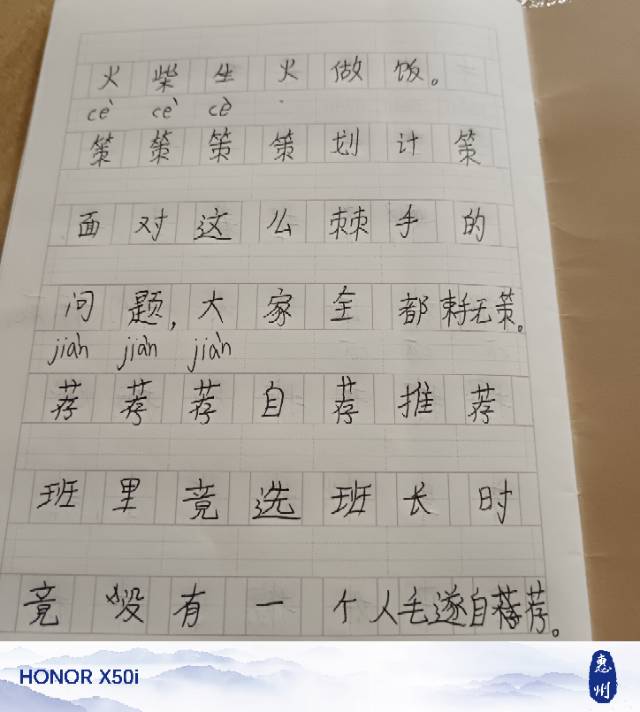 火柴生火做饭。
cè cè cè
策策策策划计策
面对这么棘手的
问题,大家全都束手无策。
jiàn jiàn jiàn
荐荐荐自荐推荐
班里竟选班长时
竟没有一个人毛遂自荐。
HONOR X50i
惠州